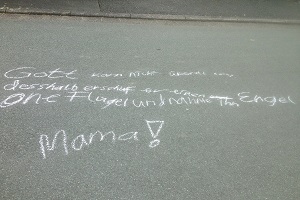 Gott kann nicht überall sein
desshalb erschuf er einen
one Flügel und nannte ihn Engel
Mama!